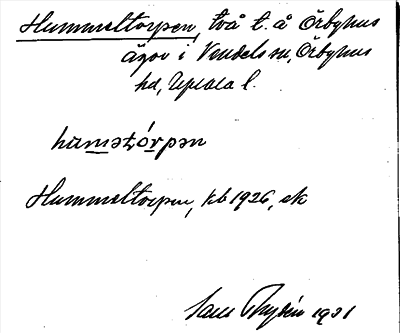 Hummeltorpen, två t. å Örbyhus
ägor i Vendels sn, Örbyhus
hd, Uppsala l.
huməʈórpən
Hummeltorpen, kb 1926, ek
1931